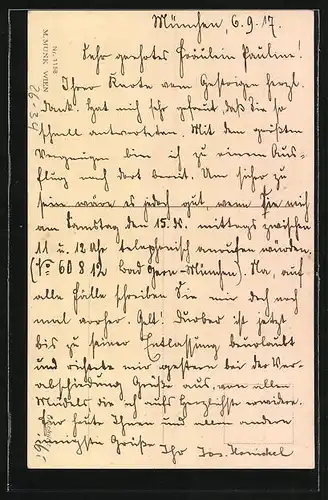 München, 6.9.17.
Sehr geehrtes Fräulein Pauline!
Ihrer Karte vom Gestrigen herzl.
Dank. Hat mich sehr gefreut, daß Sie so
schnell antworteten. Mit dem größten
Vergnügen bin ich zu einem Aus-
flug nach dort bereit. Um sicher zu
sein wäre es jedoch gut, wenn Sie mich
am Samstag den 15. ds. mittags zwischen
11 u. 12 Uhr telephonisch anrufen würden.
(No 60812 München). Na, auf
alle Fälle schreiben Sie mir doch noch
mal vorher. Gelt! ist jetzt
bis zu seiner Entlassung beurlaubt
und richtete mir gestern bei der Ver-
abschiedung Grüße aus, von allen
Mädels die ich aufs Herzlichste erwidere.
Für heute Ihnen und allen andern
innigste Grüße Ihr Jos.
M. MUNK WIEN
Nr. 1158